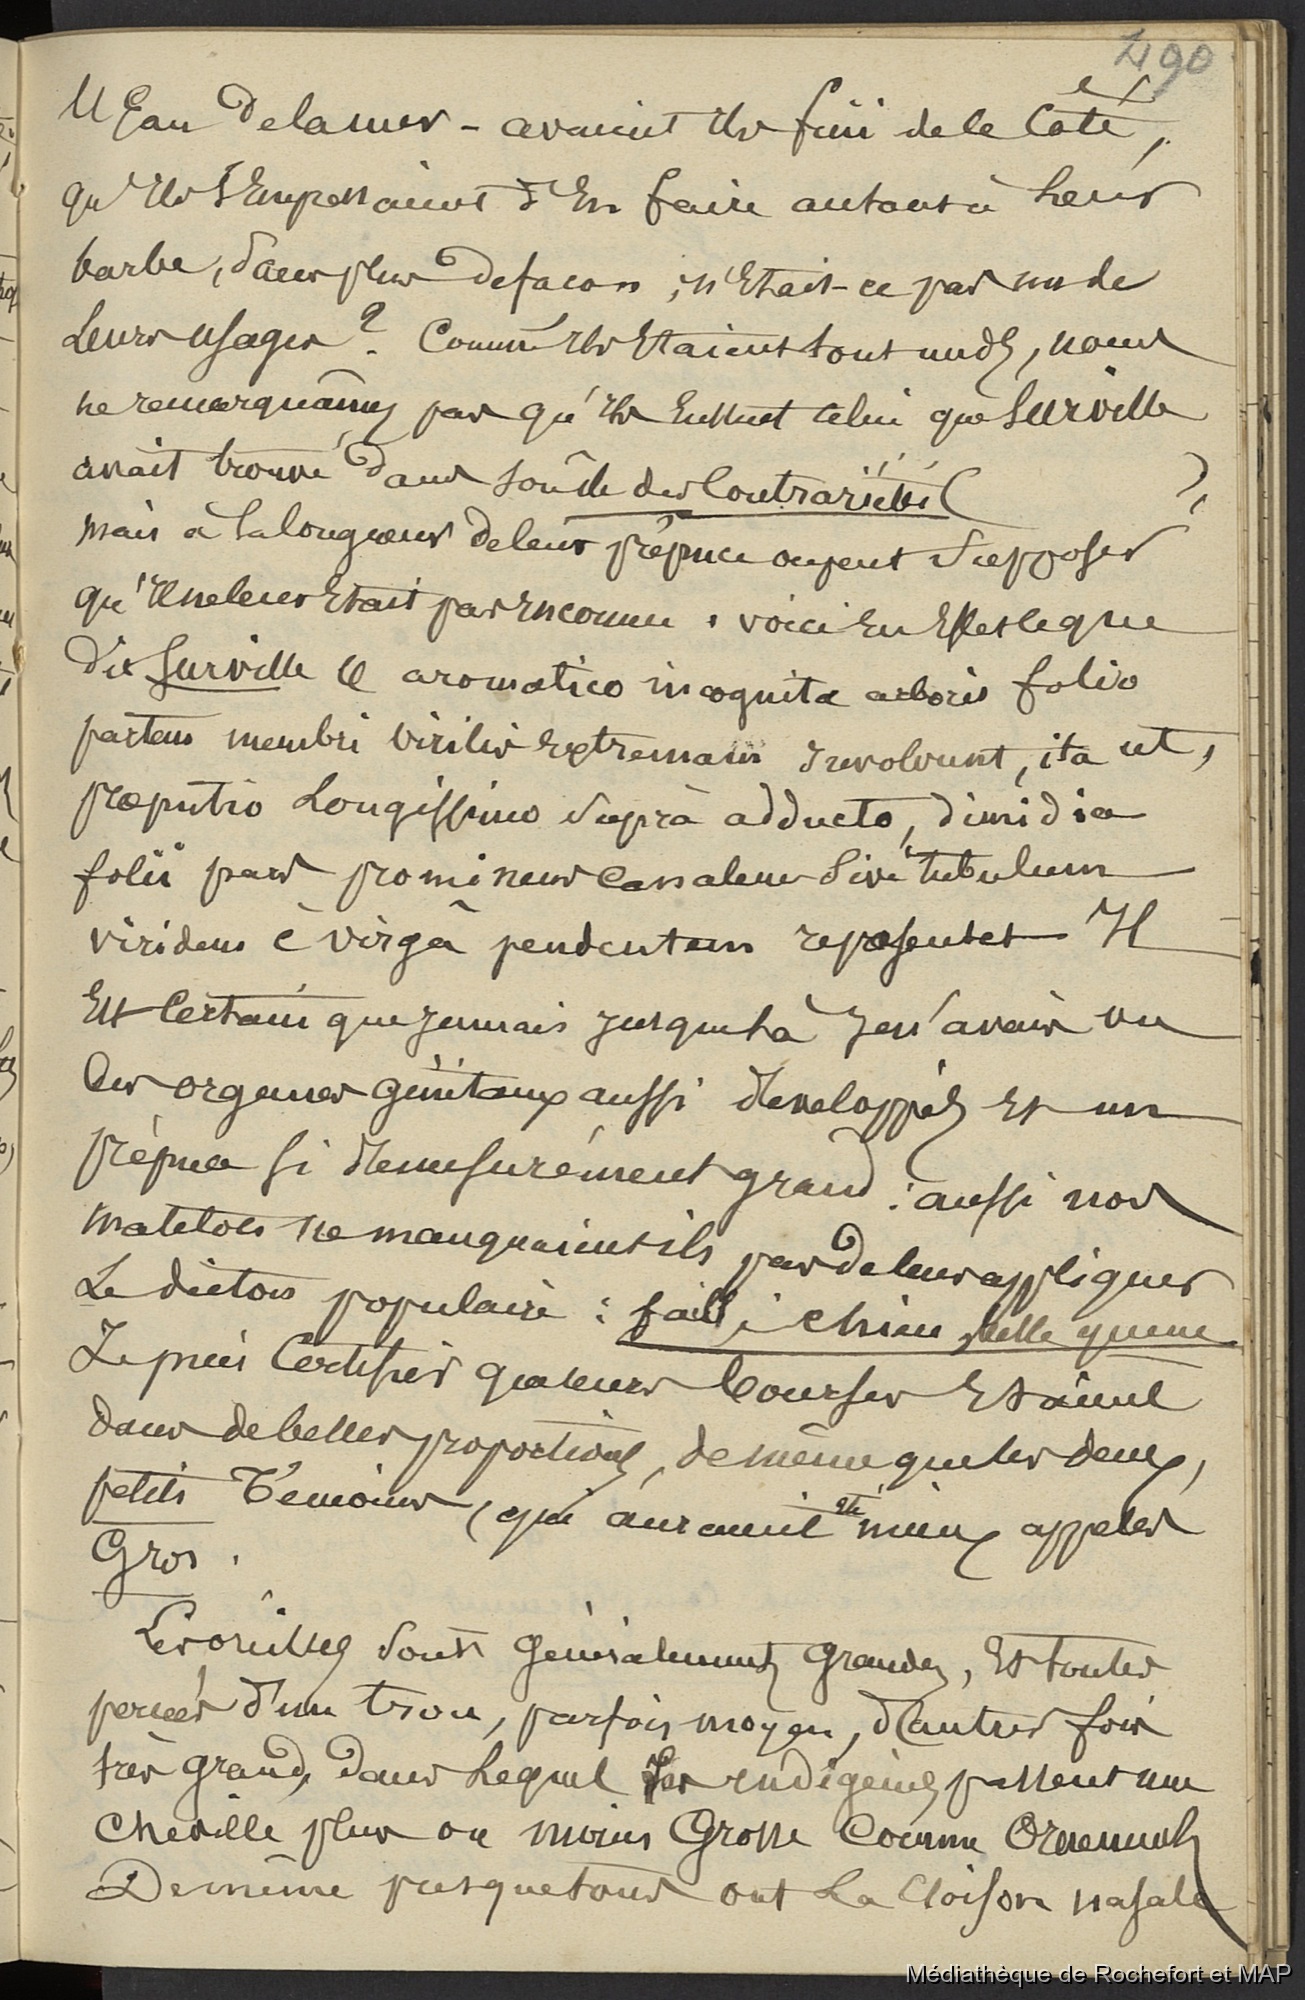 490
l'Eau de la mer - avaient ils fini de le Coté,
qu'ils s'Empressaient d'En faire autant à leur
barbe, sans plus de facon ; n'Etait-ce pas un de
Leurs usages ? Comme ils Etaient tout nuds, nous
ne remarquâmes pas qu'ils Eussent celui que Surville
avait trouvé dans son île des Contrariétés (?)
mais à la longueur de leur prépuce on peut Supposer
qu'il ne leur Etait pas inconnu. voici En Effet ce que
dit Surville « aromatico incognitæ arboris folio
partem membri virilis Extremam involvunt, ita ut,
præputio Longissimo Suprà adducto, dimidia
folii pars prominens canalem Sive tubulum
viridem è virgâ pendentem repræsentet Il
Est Certain que jamais jusque là je n'avais vu
des organes génitaux aussi developpés Et un
prépuce si démesurément grand : aussi nos
matelots ne manquaient ils pas de leur appliquer
Le dicton populaire : failli chien, belle queue
Je puis Certifier que leurs bourses Etaient
dans de belles proportions, de même que les deux,
petits Témoins, qui auraient été mieux appelés
Gros.
Les oreilles sont Généralement Grandes, Et toutes
percées d'un trou, parfois moyen, d'autres fois
très grand, dans lequel les indigènes passent une
cheville plus ou moins Grosse comme Ornement
De même presque tous ont la Cloison nasale
Médiathèque de Rochefort et MAP